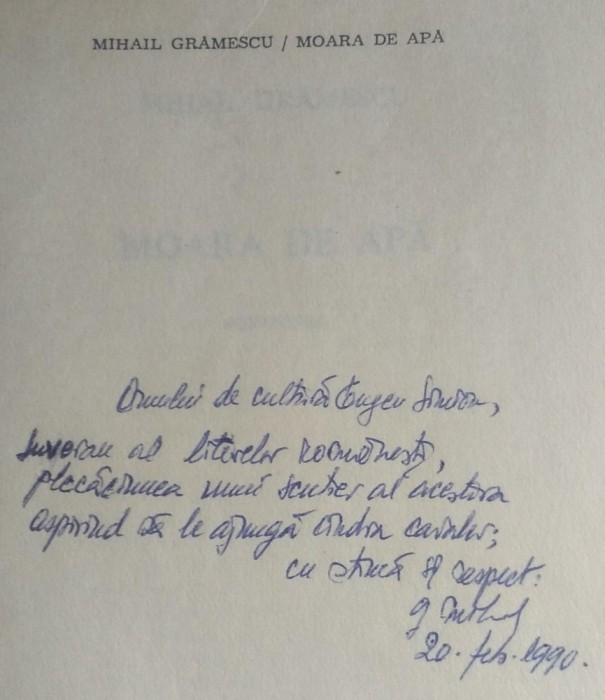 MIHAIL GRĂMESCU / MOARA DE APĂ
MIHAIL GRĂMESCU
MOARA DE APĂ
Omului de cultură Eugen Simion,
suveran al literelor românești,
plecăciunea unui scutier al acestora
aspirind să le ajungă cîndva cavaler;
cu stimă și respect:
20. feb. 1990.